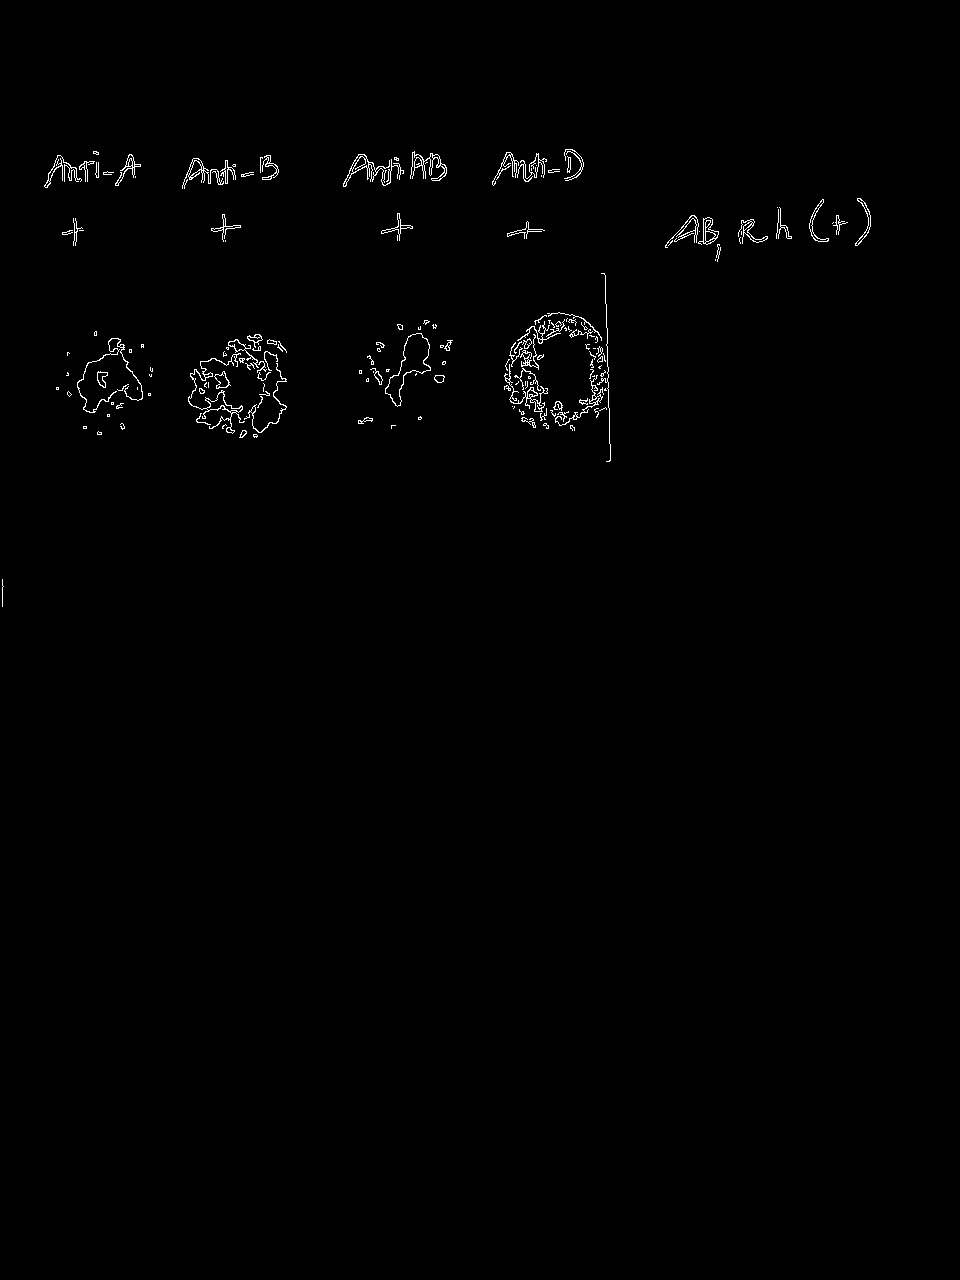 Anti-A Anti-B Anti AB Anti-D
+ + + + AB, Rh (+)